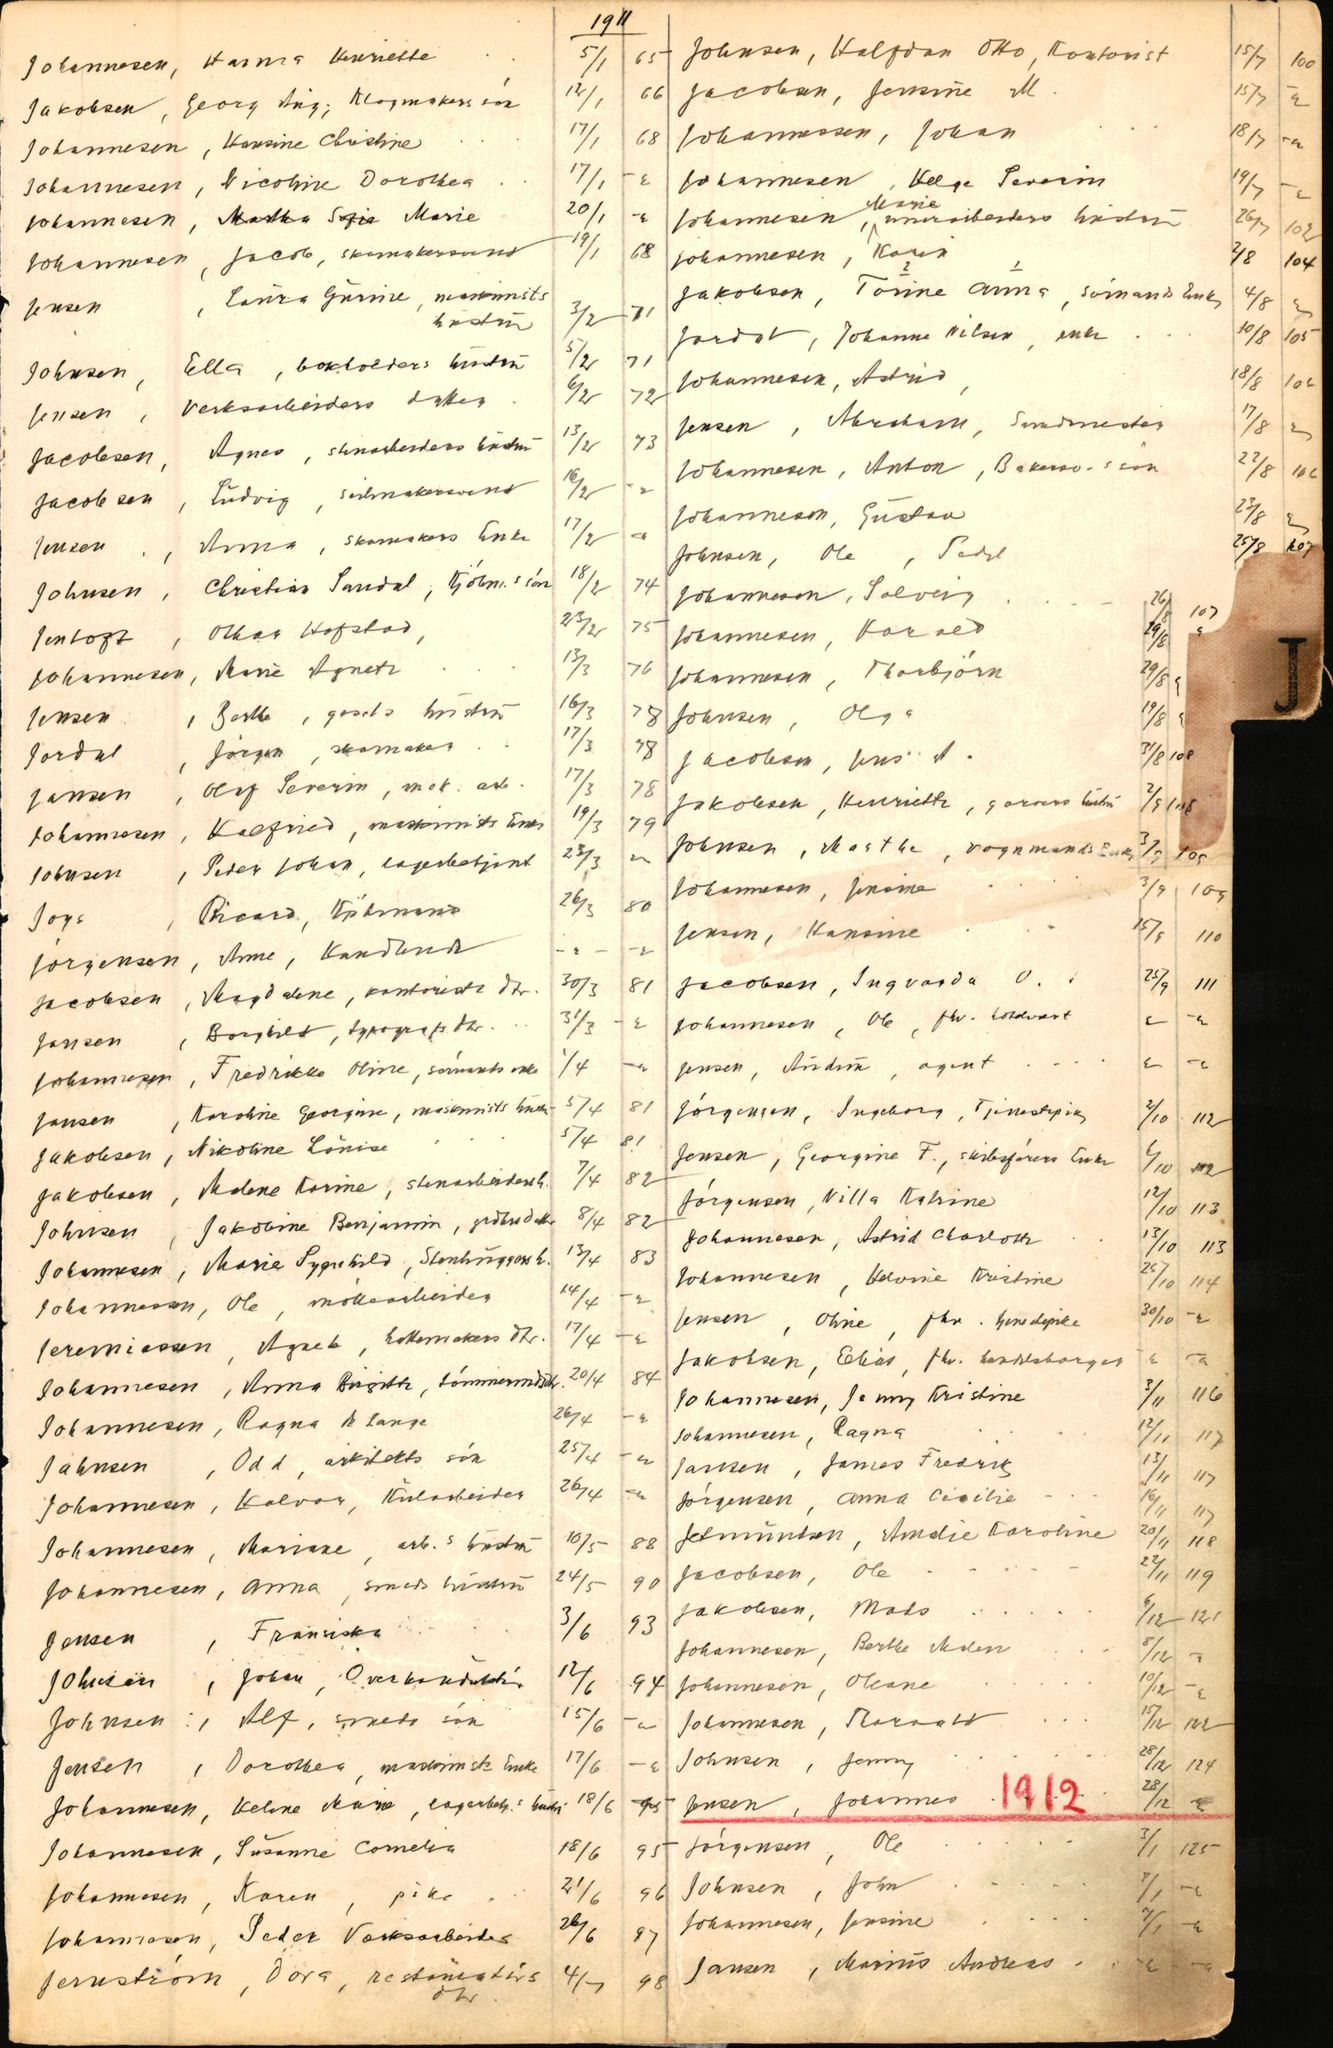 1911
Johannesen, Hanna Henriette 5/1 65
Jakobsen, Georg Aug; Klogmakers sön 12/1 66
Johannesen, Hansine Christine 17/1 68
Johannesen, Nicoline Dorothea 17/1 -"
Johannesen, Martha Sofie Marie 20/1 -"
Johannesen, Jacob, skomakersvend 19/1 68
Jensen, Laura Gurine, maskinists hustru 3/2 71
Johnsen, Ella, bokholders hustru 5/2 71
Jensen, Verksarbeiders datter 6/2 72
Jacobsen, Agnes, stenarbeiders hustru 13/2 73
Jacobsen, Ludvig, seilmakersvend 16/2 -"
Jensen, Anna, skomakers Enke 17/2 -"
Johnsen, Christian Sandal, Kjöbm.s sön 18/2 74
Jentoft, Othar Hofstad, 23/2 75
Johannesen, Marie Agnete 13/3 76
Jensen, Berthe, gasets hustru 16/3 78
Jordal, Jörgen, skomaker 17/3 78
Jansen, Oluf Severin, mek. arb. 17/3 78
Johannesen, Halfried, maskinists Enke 19/3 79
Johnsen, Peder Johan, lagerbetjent 23/3 "
Joys, Ricard, Kjöbmand 26/3 80
Jörgensen, Anne, Handlende -"- -"
Jacobsen, Magdalene, kontorists dtr. 30/3 81
Jansen, Borghild, typografs dtr. 31/3 -"
Johannesen, Fredrikke Oline, sömands enke 1/4 -"
Jansen, Karoline Georgine, maskinists hustru 5/4 81
Jakobsen, Nikoline Lovise 5/4 81
Jakobsen, Malene Karine, stenarbeiders h. 7/4 82
Johnsen, Jakobine Benjamin, 8/4 82
Johannesen, Marie Sygnhild, Stenhuggers h. 13/4 83
Johannesen, Ole, möllearbeider 14/4 -"
Jeremiassen, Agnete, hattemakers dtr. 17/4 -"
Johannesen, Anna Birgitte, tömmermds dtr. 20/4 84
Johannesen, Ragna M Lange 26/4 -"
Jahnsen, Odd, arkitekts sön 25/4 -"
Johannesen, Halvor, Kularbeider 26/4 -"
Johannesen, Mariane, arb.s hustru 10/5 88
Johannesen, Anna, smeds hustru 24/5 90
Jensen, Fransiska 3/6 93
Johnsen, Johan, Overkonduktör 12/6 94
Johnsen, Alf, smeds sön 15/6 -"
Jensen, Dorothea, maskinists Enke 17/6 -"
Johannesen, Heline Marie, lagerbetj.s hustru 18/6 95
Johannesen, Susanne Cornelia 18/6 95
Johannesen, Karen, pike 21/6 96
Johannesen, Peder Verksarbeider 26/6 97
Jernström, Dora, restauratörs dtr 4/7 98
Johnsen, Halfdan Otto, Kontorist 15/7 100
Jacobsen, Jensine M. 15/7 -"
Johannessen, Johan 18/7 -"
Johannesen, Helge Severin 19/7 -"
Johannesen, Marie murarbeiders hustru 26/7 102
Johannesen, Karin 2/8 104
Jakobsen, Torine Anna, sömands Enke 4/8 "
2 1
Jordal, Johanne Nilsen, enke 10/8 105
Johannesen, Astrid, 18/8 106
Jensen, Abraham, Sundmester 17/8 "
Johannesen, Anton, Bakersv.s sön 22/8 106
Johannesen, Gustav 23/8 "
Johnsen, Ole, Pedel 25/8 107
Johannesen, Solveig 26/8 107
Johannesen, Harald 29/8 "
Johannesen, Thorbjörn 29/8 "
Johnsen, Olga 19/8 "
Jacobsen, Jens A. 31/8 108
Jakobsen, Henriette, garvers hustru 2/9 108
Johnsen, Marthe, vognmands Enke 3/9 109
Johannesen, Jensine 3/9 109
Jensen, Hansine 15/9 110
Jacobsen, Ingvarda O. 25/9 111
Johannesen, Ole, fhv. holdvert " -"
Jensen, Audun, agent " -"
Jörgensen, Ingeborg, Tjenestepike 2/10 112
Jensen, Georgine F., skibsförers Enke 6/10 112
Jörgensen, Villa Katrine 12/10 113
Johannesen, Astrid Charlotte 13/10 113
Johannesen, Helvine Kristine 25/10 114
Jensen, Oline, fhv. tjenestepike 30/10 -"
Jakobsen, Elias, fhv. handelsborger " -"
Johannesen, Jenny Kristine 3/11 116
Johannesen, Ragna 12/11 117
Jansen, James Fredrik 13/11 117
Jörgensen, Anna Cicilie 16/11 117
Jetmundsen, Amalie Karoline 20/11 118
Jacobsen, Ole 22/11 119
Jakobsen, Mads 6/12 121
Johannesen, Berthe Malene 8/12 -"
Johannesen, Oleane 10/12 -"
Johannesen, Thorvald 15/12 122
Johnsen, Jenny 28/12 124
Jensen, Johannes 28/12 -"
1912
Jörgensen, Ole 3/1 125
Johnsen, John 7/1 -"
Johannesen, Jensine 7/1 -"
Jansen, Marius Andreas -" -"
J